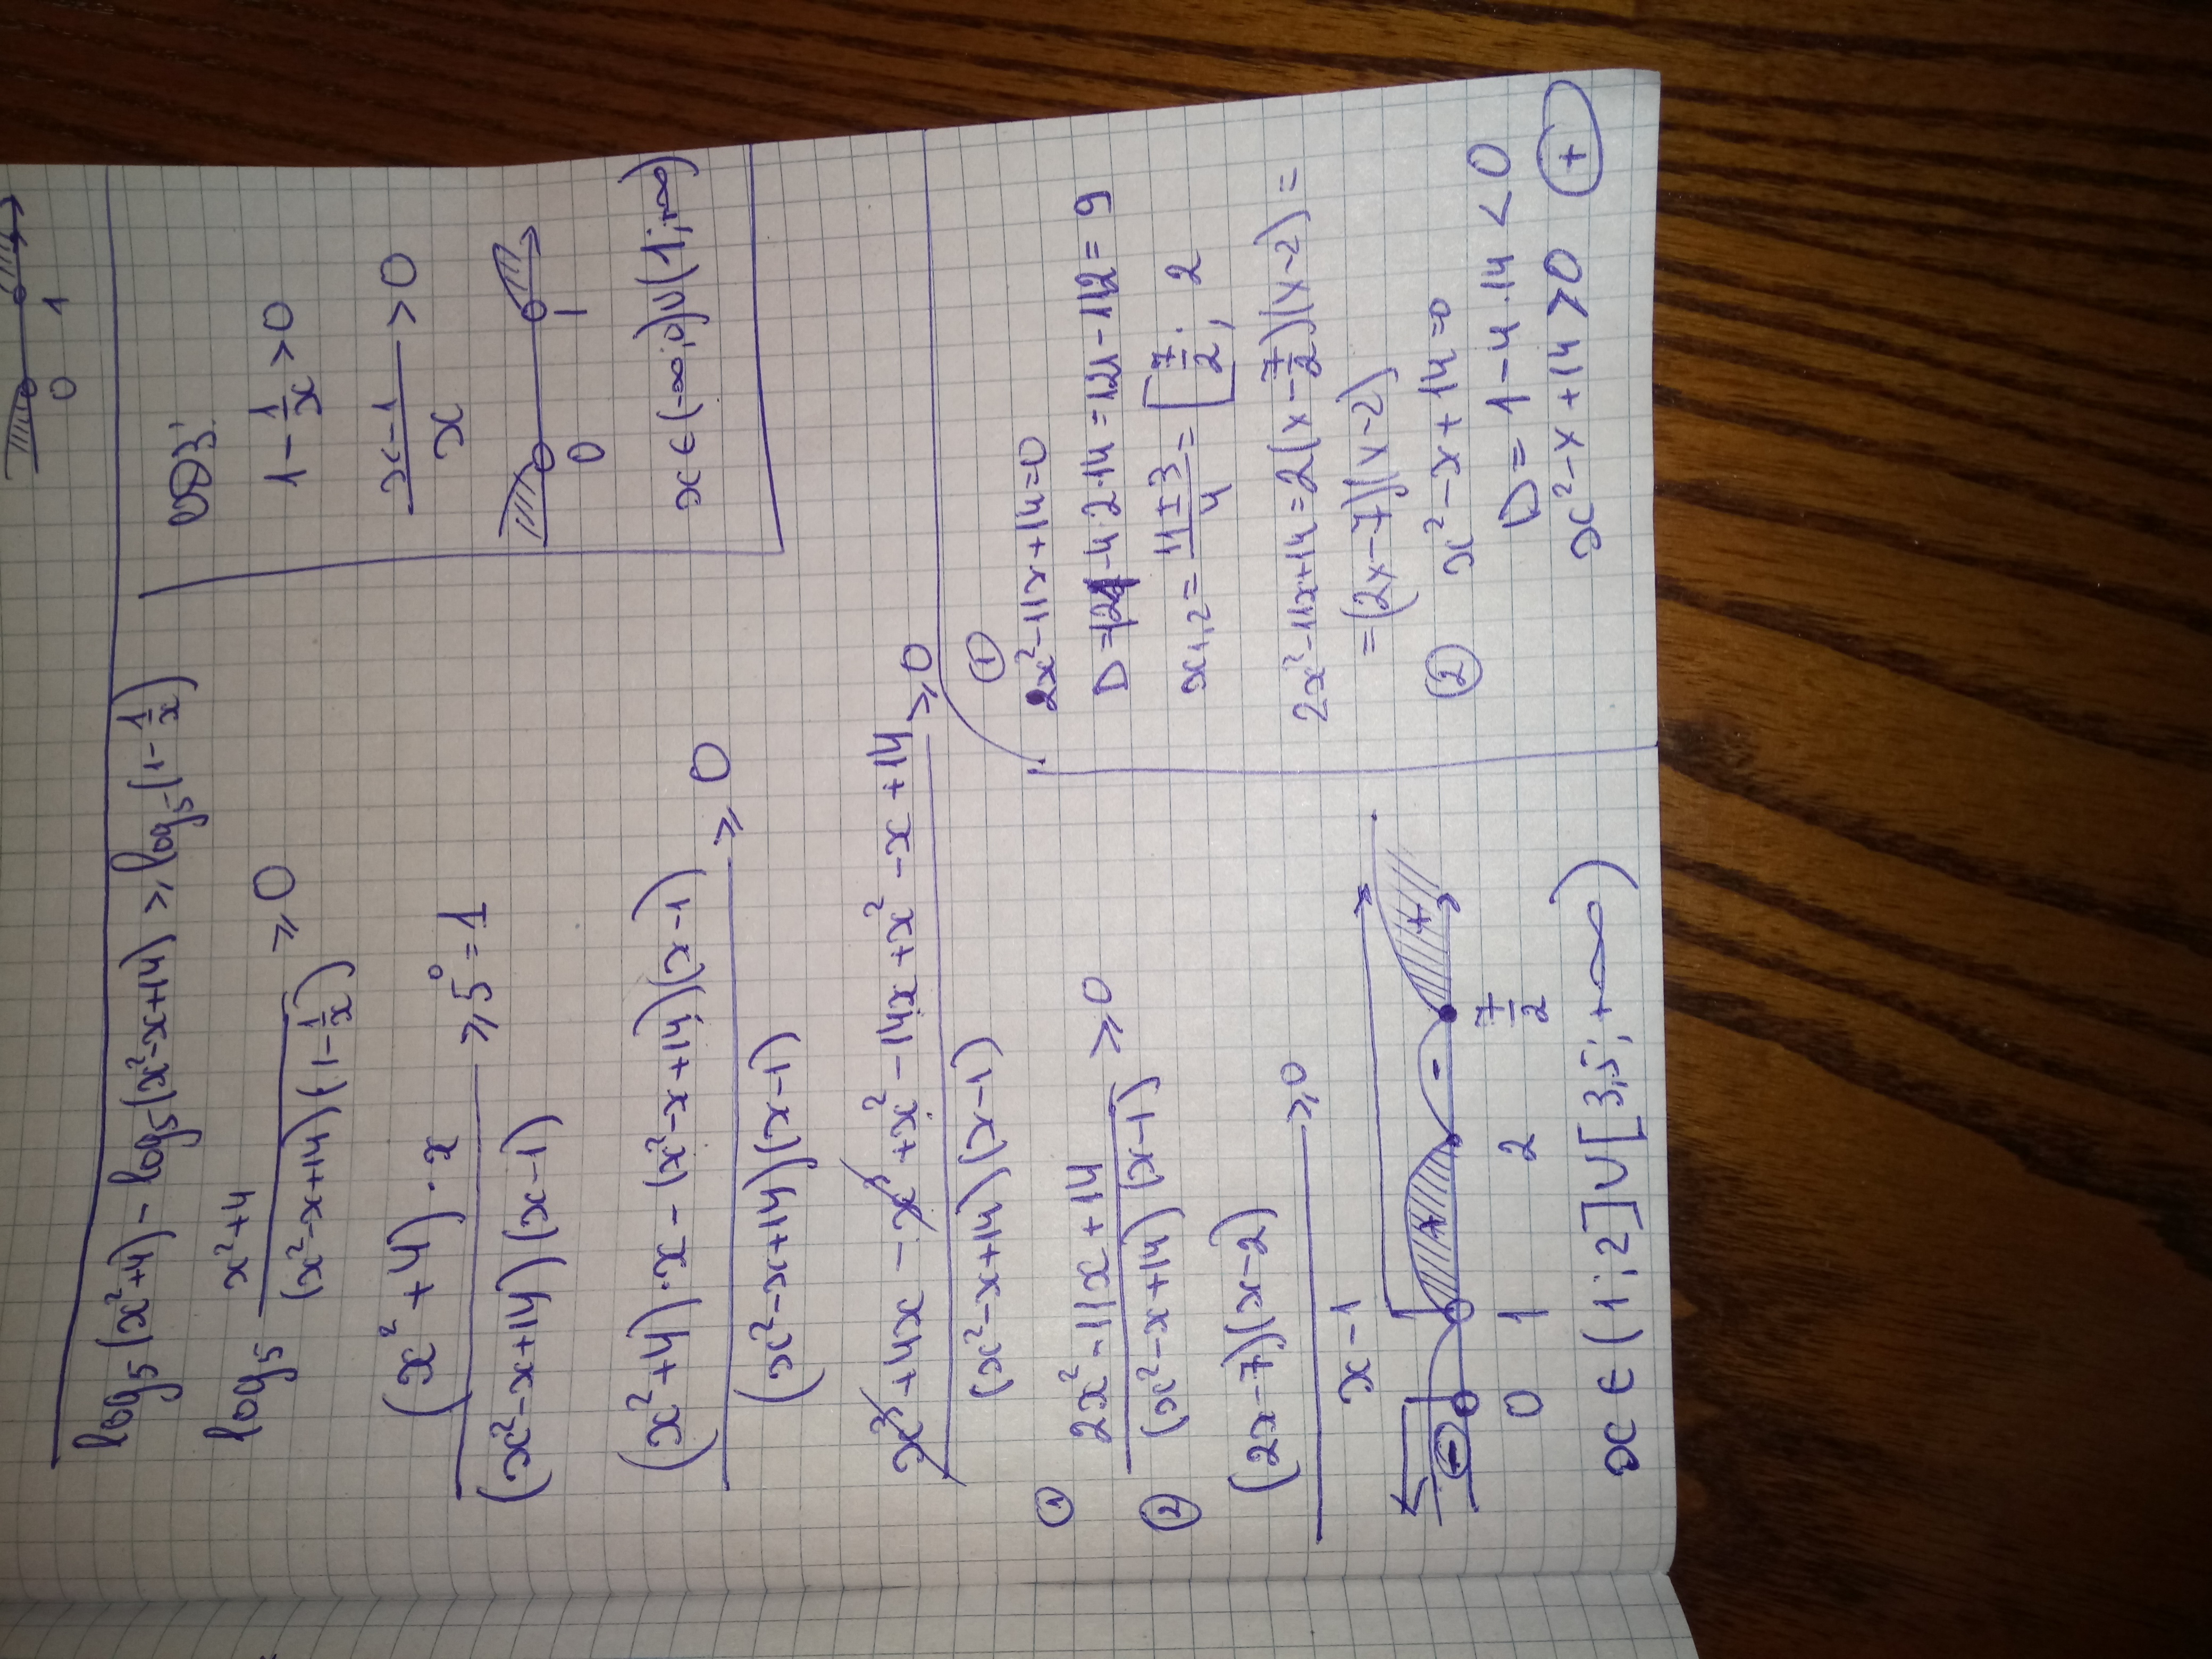 0 1
log₅(x²+4) - log₅(x²-x+14) ⩾ log₅(1-1/x)
log₅ (x²+4)/((x²-x+14)(1-1/x)) ⩾ 0
((x²+4)·x)/((x²-x+14)(x-1)) ⩾ 5⁰ = 1
((x²+4)·x - (x²-x+14)(x-1))/((x²-x+14)(x-1)) ⩾ 0
(x³+4x - x³+x²-14x+x²-x+14)/((x²-x+14)(x-1)) ⩾ 0
① ② (2x²-11x+14)/((x²-x+14)(x-1)) ⩾ 0
((2x-7)(x-2))/(x-1) ⩾ 0
- + - +
0 1 2 7/2
x ∈ (1;2]∪[3,5;+∞)
ОДЗ:
1 - 1/x > 0
(x-1)/x > 0
0 1
x ∈ (-∞;0)∪(1;+∞)
①
2x²-11x+14=0
D=121-4·2·14=121-112=9
x₁,₂ = (11±3)/4 = [7/2; 2
2x²-11x+14=2(x-7/2)(x-2)=
=(2x-7)(x-2)
② x²-x+14=0
D=1-4·14<0
x²-x+14>0 +